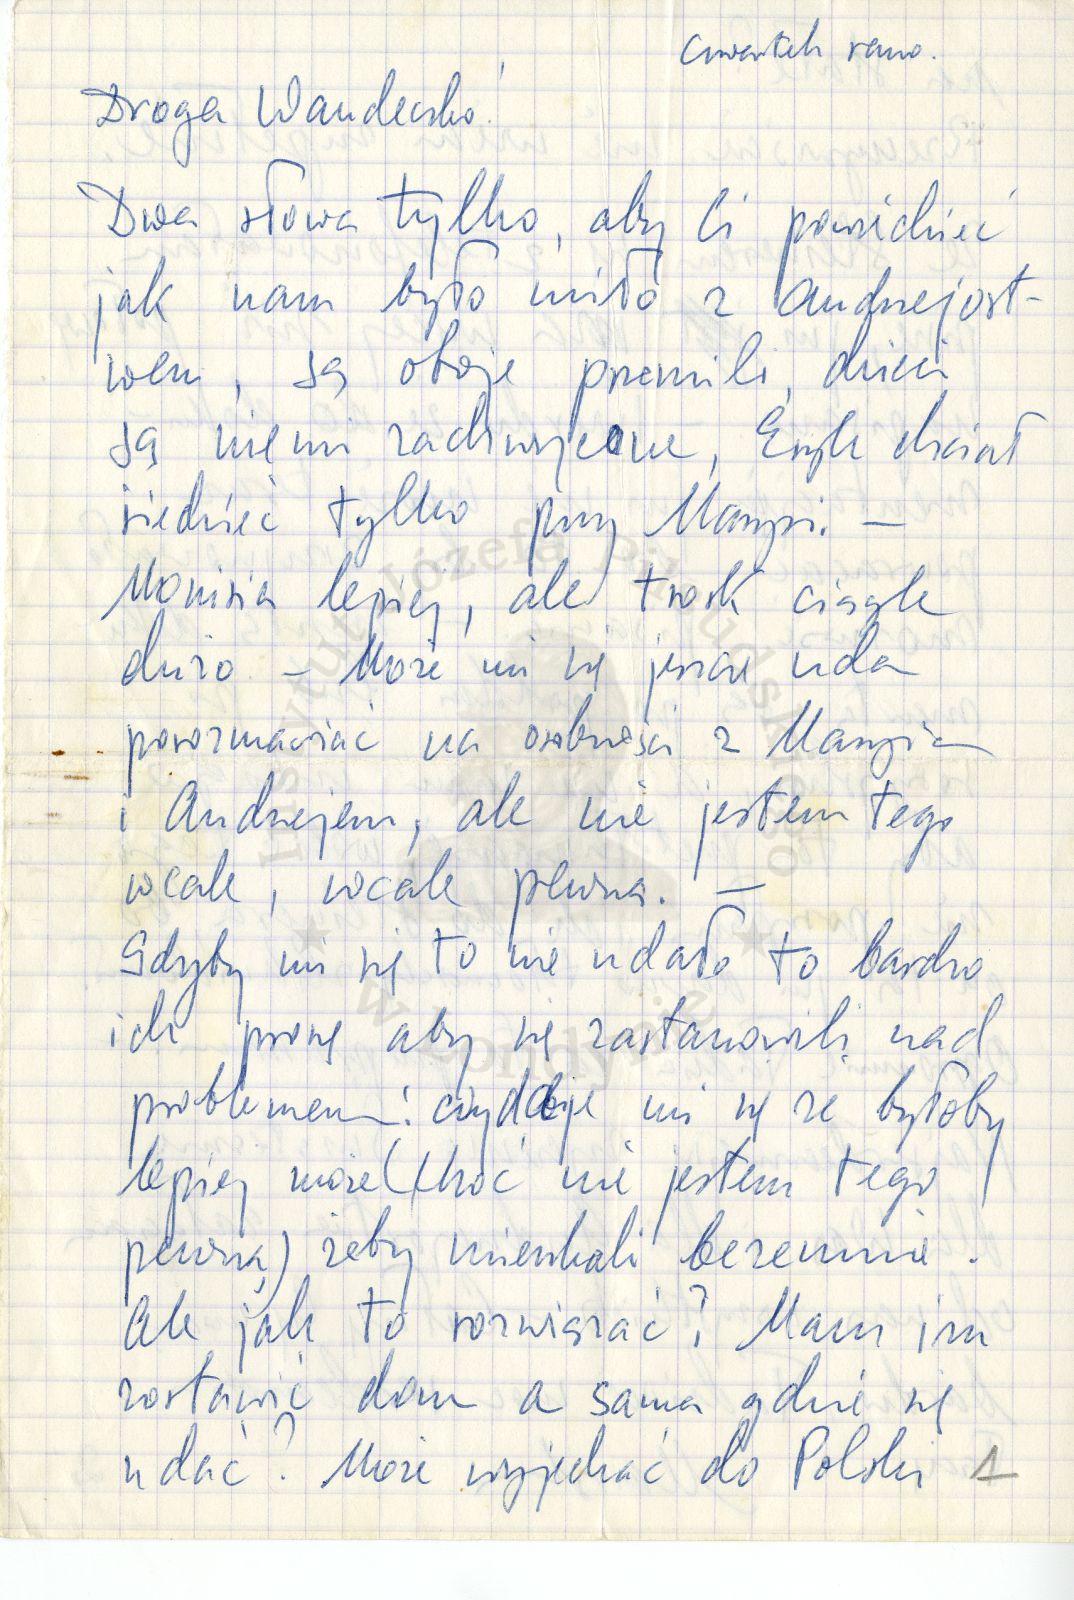 czwartek rano.
Droga Wandeczko!
Dwa słowa tylko, aby Ci powiedzieć
jak nam było miło z Andrzejost-
wem, są oboje przemili, dzieci
są niemi zachwycone, Eryk chciał
siedzieć tylko przy Marysi. —
Monisia lepiej, ale trosk ciągle
dużo. — Może mi się jeszcze uda
porozmawiać na osobności z Marysią
i Andrzejem, ale nie jestem tego
wcale, wcale pewna. —
Gdyby mi się to nie udało to bardzo
ich proszę aby się zastanowili nad
problemem: mi się że byłoby
lepiej może (choć nie jestem tego
pewna) żeby mieszkali bezemnie.
Ale jak to rozwiązać? Mam im
zostawić dom a sama gdzie się
udać? Może wyjechać do Polski 1
Instytut Józefa Piłsudskiego
w Londynie